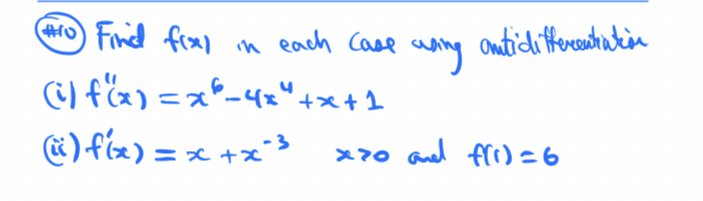 #10 Find f(x) in each case using antidifferentiation
(i) f''(x) = x⁶ - 4x⁴ + x + 1
(ii) f'(x) = x + x⁻³ x>0 and f(1) = 6